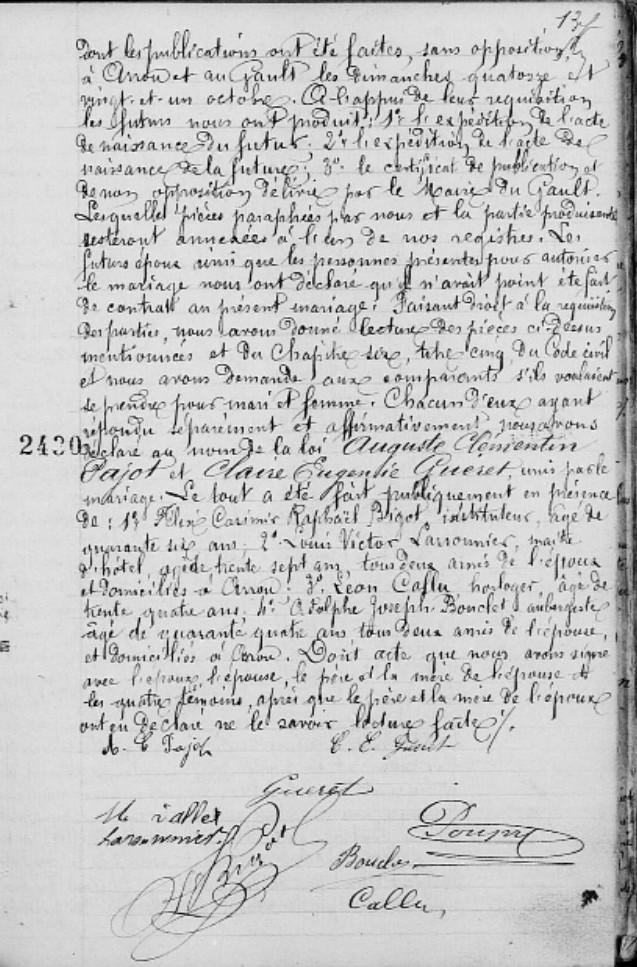 dont les publications ont été faites, sans opposition,
à Arrou et au Gault les dimanches quatorze et
vingt-et-un octobre. A l'appui de leur requisition
les futurs nous ont produit: 1º l'expédition de l'acte
de naissance du futur; 2º l'expédition de l'acte de
naissance de la future; 3º le certificat de publication et
de non opposition délivré par le Maire du Gault.
Lesquelles pièces paraphées par nous et la partie produisante
resteront annexées à l'un de nos registres. Les
futurs époux ainsi que les personnes présentes pour autoriser
le mariage nous ont déclaré qu'il n'avait point été fait
de contrat au présent mariage. Faisant droit à la requisition
des parties, nous avons donné lecture des pièces ci-dessus
mentionnées et du chapitre six, titre cinq du Code civil
et nous avons demandé aux comparants s'ils voulaient
se prendre pour mari et femme. Chacun d'eux ayant
répondu séparement et affirmativement, nous avons
2430
déclaré au nom de la loi Auguste Clémentin
Pajot et Claire Eugenie Gueret, unis par le
mariage. Le tout a été fait publiquement en présence
de: 1º Félix Casimir Raphaël Bigot instituteur, âgé de
quarante six ans; 2º Louis Victor Laronnier, maître
d'hôtel, agé de trente sept ans, tous deux amis de l'époux
et domiciliés à Arrou; 3º Léon Callu, horloger, âgé de
trente quatre ans; 4º Adolphe Joseph Bouclet aubergiste
âgé de quarante quatre ans tous deux amis de l'épouse,
et domiciliés à Arrou. Dont acte que nous avons signé
avec l'époux, l'épouse, le père et la mère de l'épouse et
les quatre témoins, après que le père et la mère de l'époux
ont eu déclaré ne le savoir lecture faite.
A. C Pajot
C. E. Gueret
Gueret
Laronnier
Bigot
Bouclet
Callu